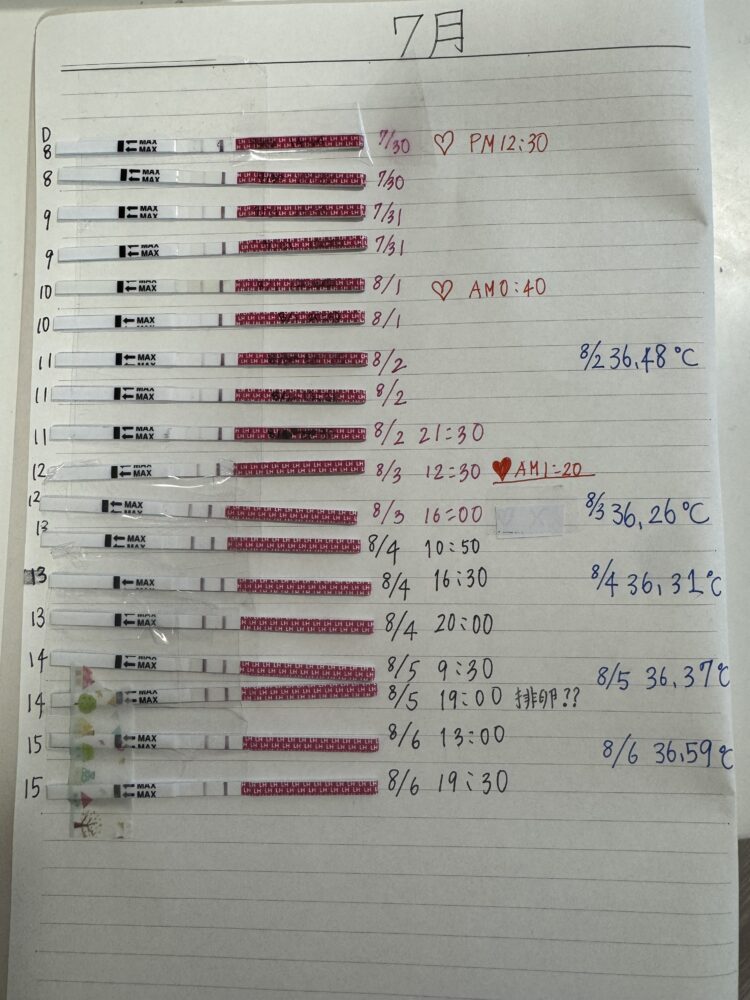 7月
D
8 MAX MAX 7/30 ♡ PM12:30
8 MAX MAX 7/30
9 MAX MAX 7/31
9 MAX MAX 7/31
10 MAX MAX 8/1 ♡ AM0:40
10 MAX 8/1
11 MAX MAX 8/2 8/2 36,48℃
11 MAX MAX 8/2
11 MAX MAX 8/2 21:30
12 MAX MAX 8/3 12:30 ♥AM1:20
12 MAX MAX 8/3 16:00 8/3 36,26℃
13 MAX MAX 8/4 10:50
13 MAX 8/4 16:30 8/4 36,31℃
13 MAX MAX 8/4 20:00
14 MAX MAX 8/5 9:30 8/5 36,37℃
14 MAX MAX 8/5 19:00 排卵??
15 MAX MAX 8/6 13:00 8/6 36,59℃
15 MAX MAX 8/6 19:30